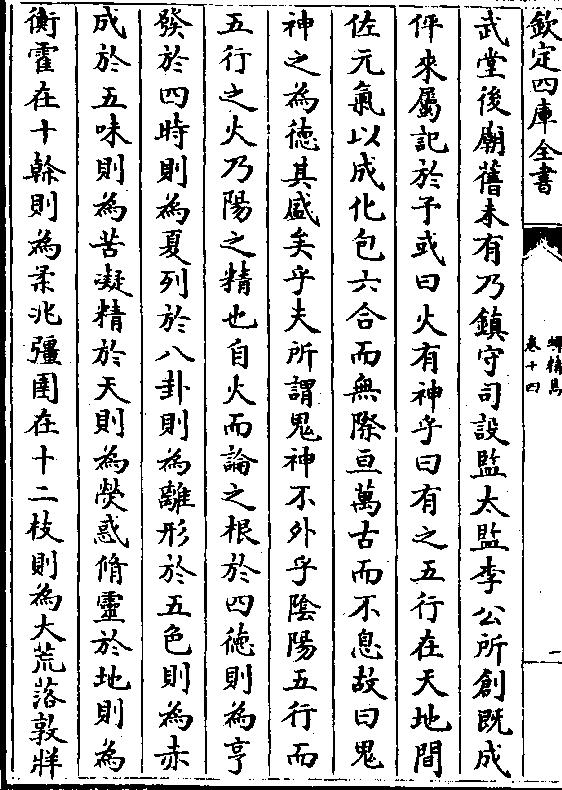 欽定四庫全書
蟫精雋
卷十四
一
武堂後廟舊未有乃鎮守司設監太監李公所創既成
伻來屬記於予或曰火有神乎曰有之五行在天地間
佐元氣以成化包六合而無際亘萬古而不息故曰鬼
神之為徳其盛矣乎夫所謂鬼神不外乎陰陽五行而
五行之火乃陽之精也自火而論之根於四徳則為亨
發於四時則為夏列於八卦則為離形於五色則為赤
成於五味則為苦凝精於天則為熒惑脩靈於地則為
衡霍在十榦則為柔兆彊圉在十二枝則為大荒落敦牂